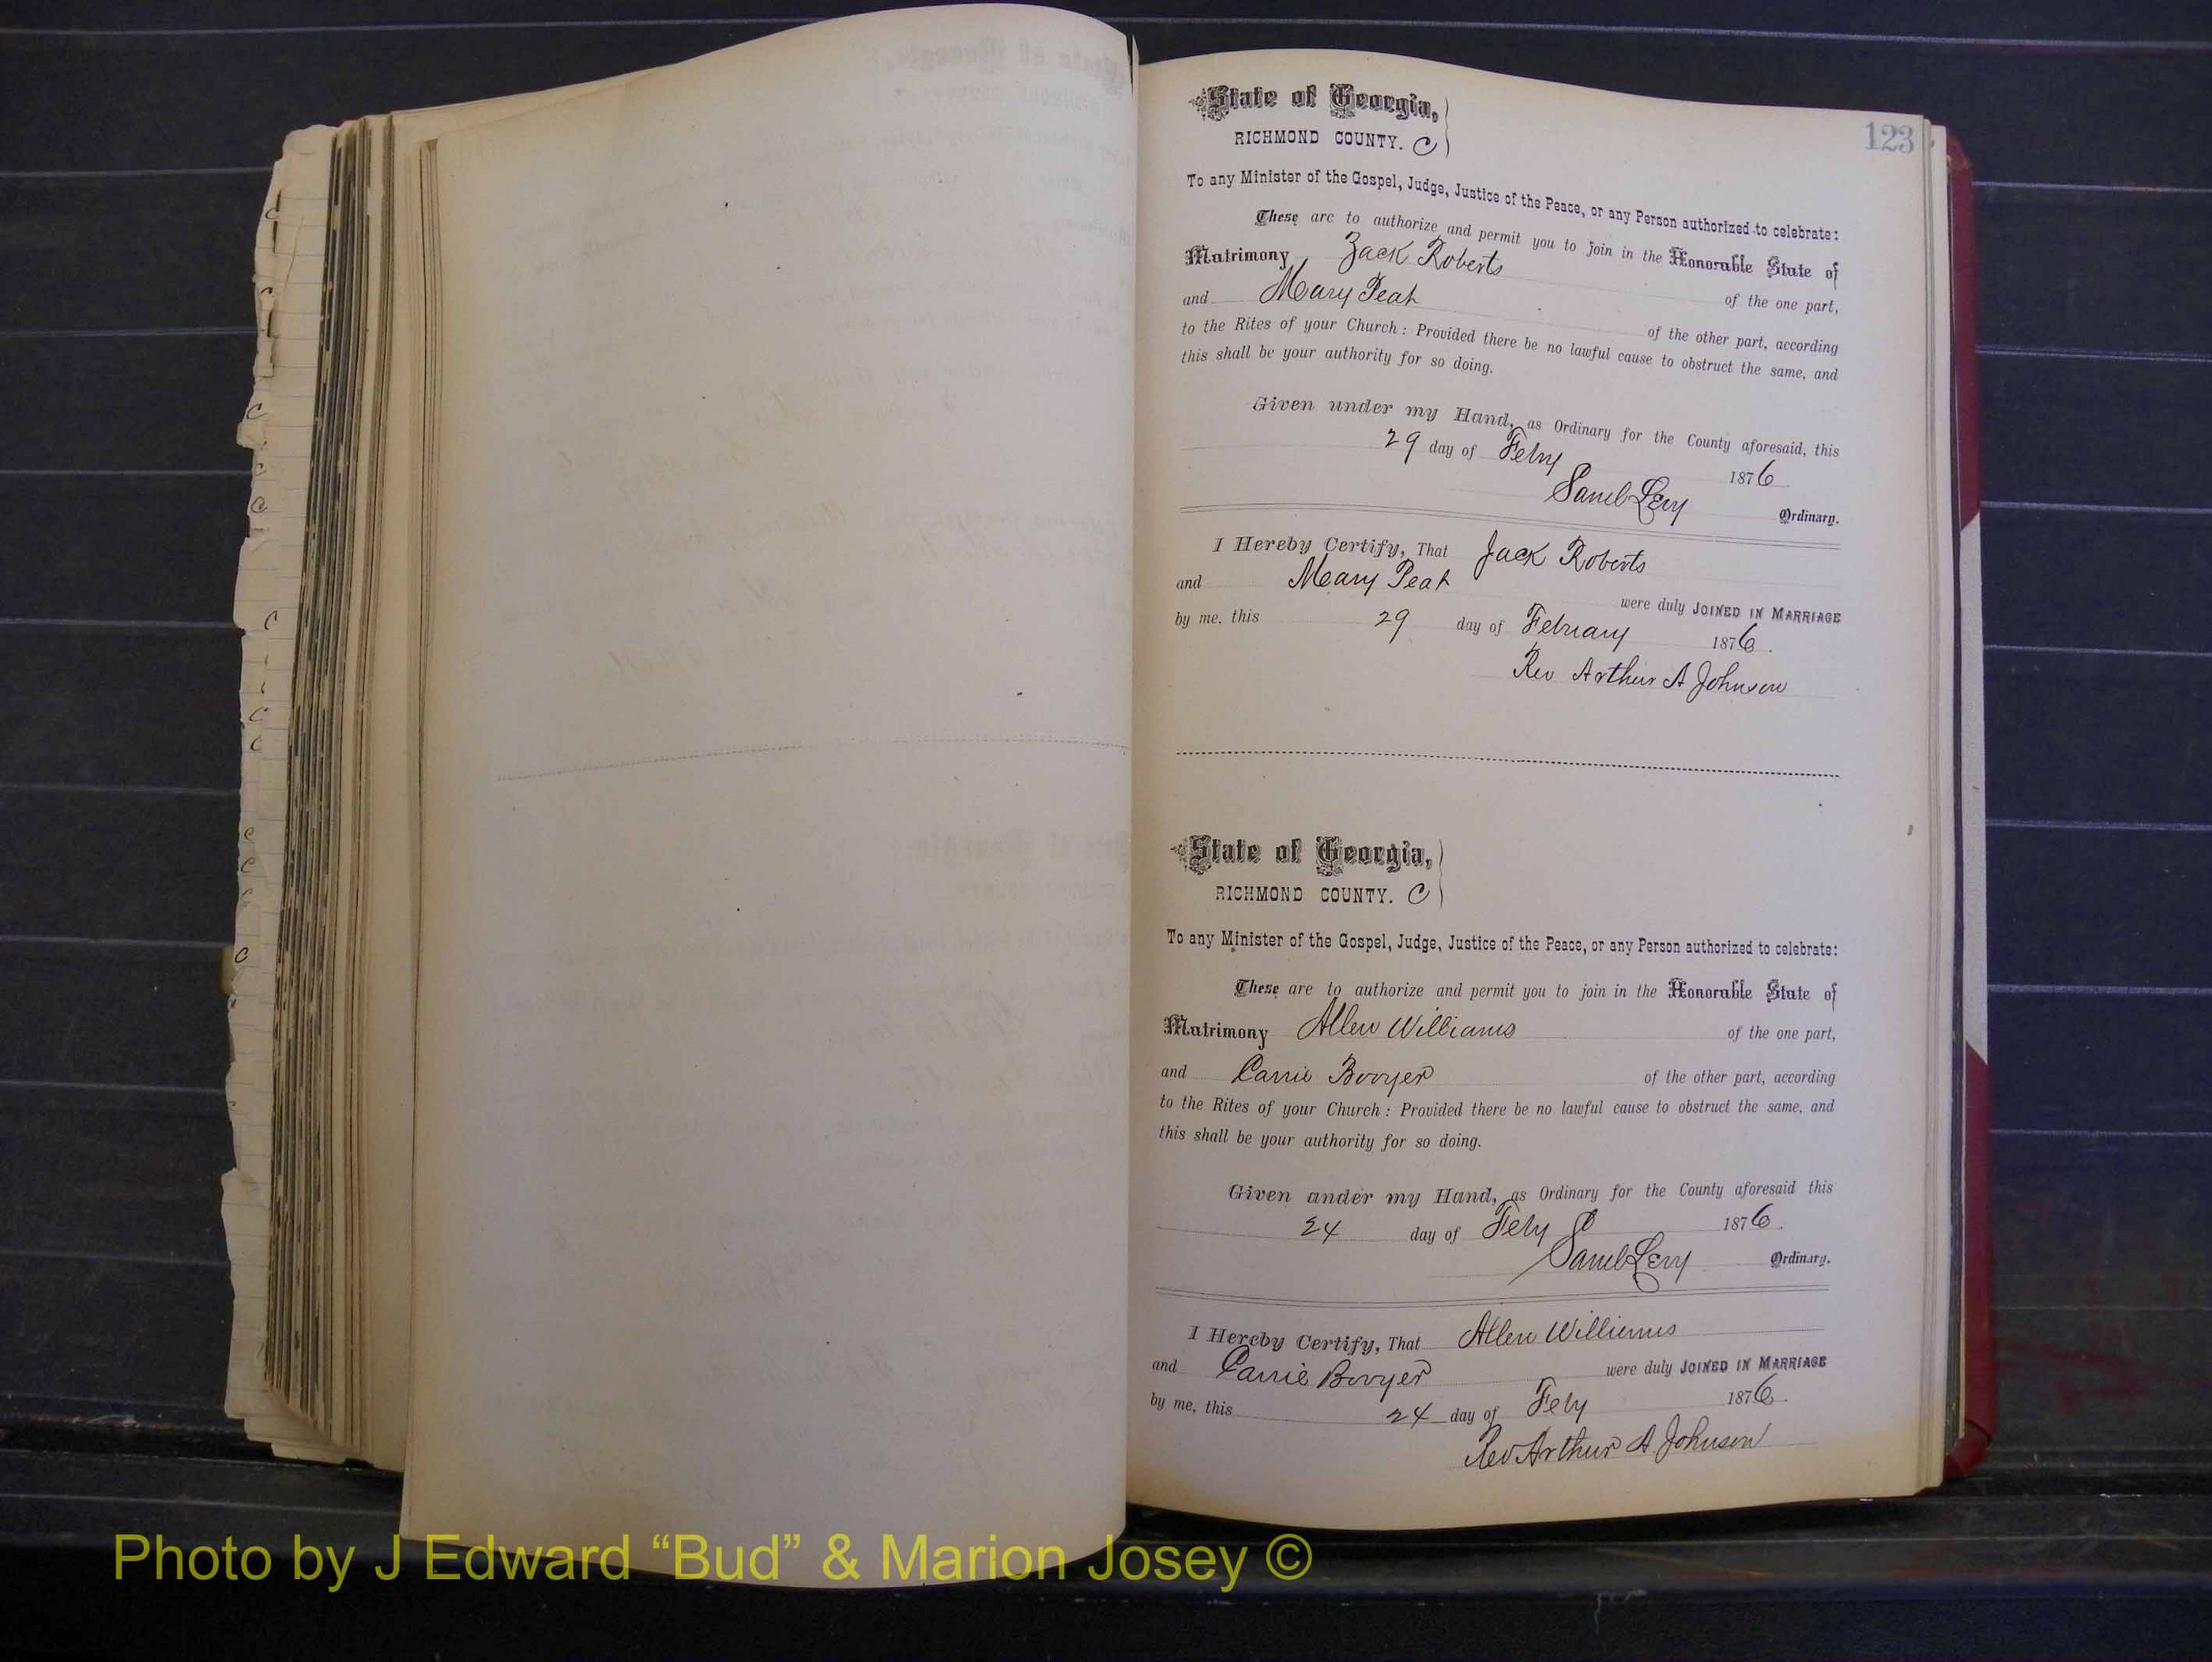 123
State of Georgia,
RICHMOND COUNTY. C
To any Minister of the Gospel, Judge, Justice of the Peace, or any Person authorized to celebrate:
These are to authorize and permit you to join in the Honorable State of
Matrimony Zack Roberts of the one part,
and Mary Peat of the other part, according
to the Rites of your Church: Provided there be no lawful cause to obstruct the same, and
this shall be your authority for so doing.
Given under my Hand, as Ordinary for the County aforesaid, this
29 day of Feby 1876
Saml Levy Ordinary.
I Hereby Certify, That Jack Roberts
and Mary Peat were duly JOINED IN MARRIAGE
by me, this 29 day of February 1876.
Rev Arthur A Johnson
State of Georgia,
RICHMOND COUNTY. C
To any Minister of the Gospel, Judge, Justice of the Peace, or any Person authorized to celebrate:
These are to authorize and permit you to join in the Honorable State of
Matrimony Allen Williams of the one part,
and Carrie Booyer of the other part, according
to the Rites of your Church: Provided there be no lawful cause to obstruct the same, and
this shall be your authority for so doing.
Given under my Hand, as Ordinary for the County aforesaid this
24 day of Feby 1876.
Saml Levy Ordinary.
I Hereby Certify, That Allen Williams
and Carrie Booyer were duly JOINED IN MARRIAGE
by me, this 24 day of Feby 1876.
Rev Arthur A Johnson
Photo by J Edward “Bud” & Marion Josey ©